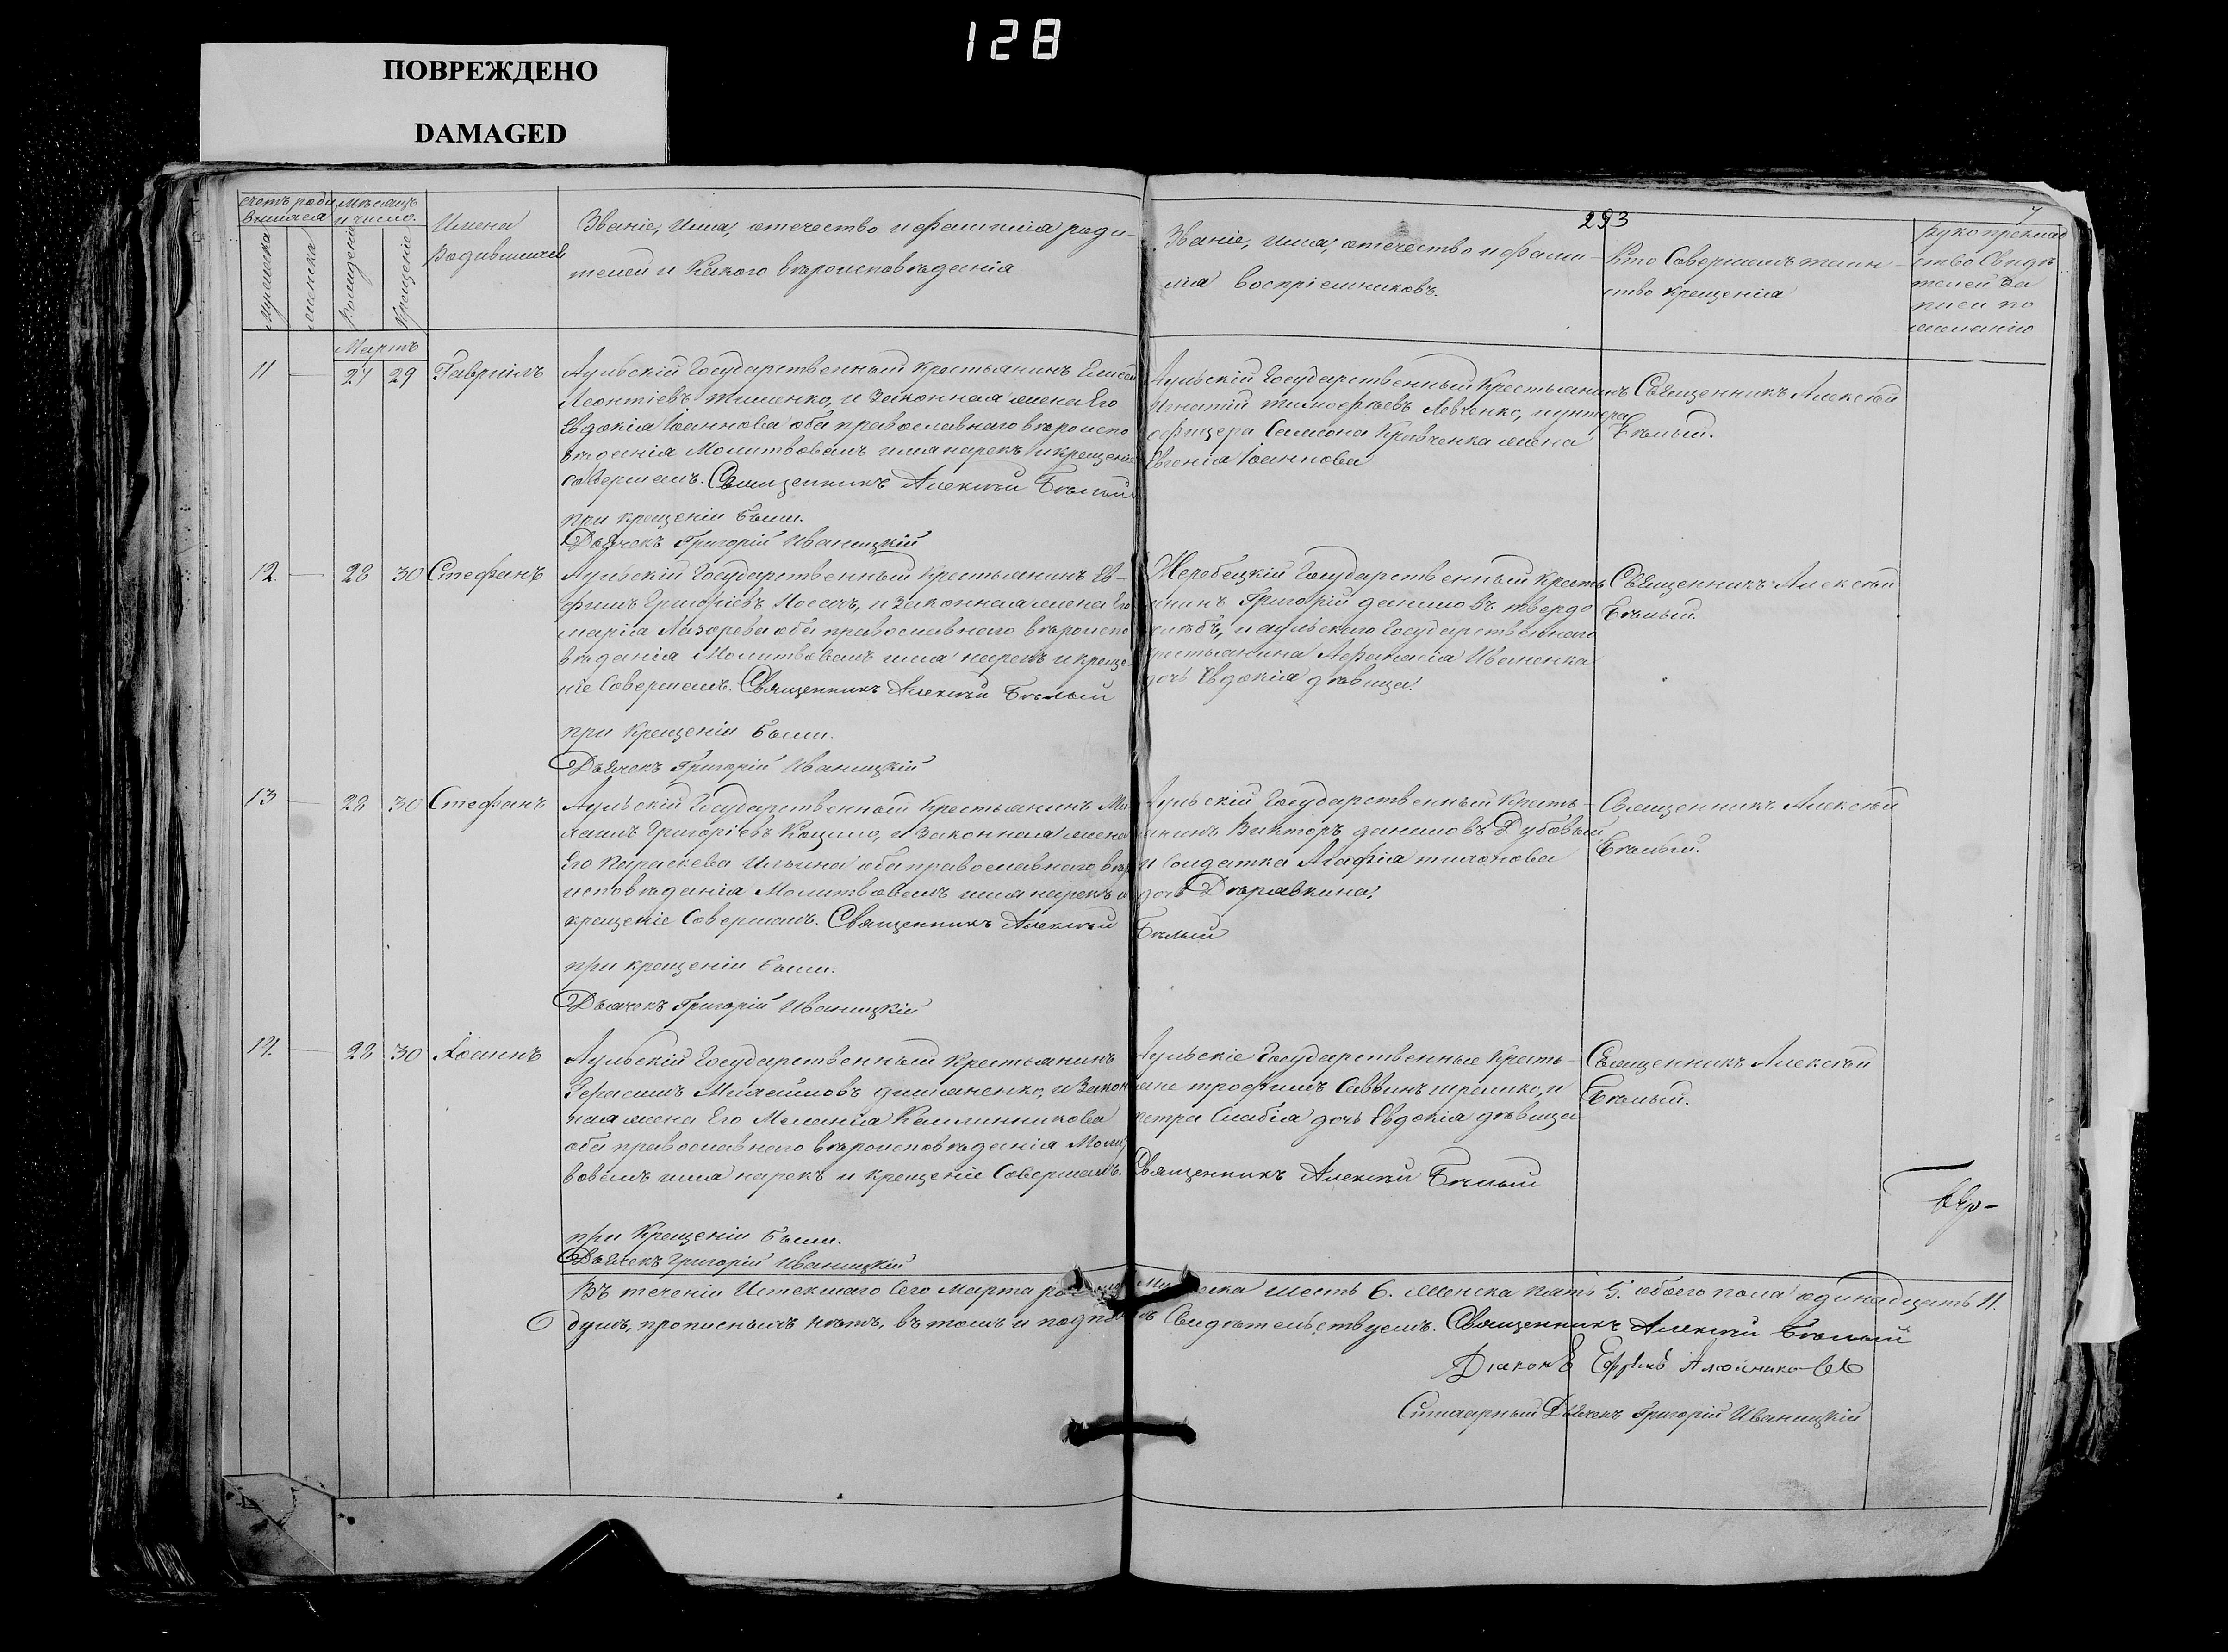 128
ПОВРЕЖДЕНО
DAMAGED
293
7
счетъ роди
вшихся
Мѣсяцъ
и число.
мужеска
женска
рожденіе
крещеніе
Имена
родившихся
Званіе, имя, отечество и фамилія роди-
телей и какого вѣроисповѣданія
Званіе, имя, отечество и фами-
лія воспріемниковъ.
Кто совершалъ таин-
ство крещенія
рукоприклад
ство свидѣ
телей за
писи по
желанію
Мартъ
11 — 27 29 Гавріилъ
Аульскій государственный крестьянинъ Елисей
Леонтіевъ Тименко, и законная жена его
Евдокія Іоаннова оба православнаго вѣроиспо
вѣданія Молитвовалъ имя нарекъ и крещеніе
совершалъ. Священникъ Алексѣй Бѣлый
при крещеніи были.
Дьячекъ Григорій Иваницкій
Аульскій государственный крестьянинъ
Игнатій Тимофѣевъ Левченко, и унтера
офицера Самсона Кривченка жена
Евгенія Іоаннова
Священникъ Алексѣй
Бѣлый.
12. — 28 30 Стефанъ
Аульскій государственный крестьянинъ Ев-
фимъ Григоріевъ Носачъ, и законная жена его
Марія Лазорева оба православнаго вѣроиспо
вѣданія Молитвовалъ имя нарекъ и креще-
ніе совершалъ. Священникъ Алексѣй Бѣлый
при крещеніи были.
Дьячекъ Григорій Иваницкій
Жеребецкій государственный кресть
янинъ Григорій Даниловъ Твердо
хлѣбъ, и аульскаго государственнаго
крестьянина Афанасія Иваненка
дочь Евдокія дѣвица.
Священникъ Алексѣй
Бѣлый.
13 — 28 30 Стефанъ
Аульскій государственный крестьянинъ Ми
хаилъ Григоріевъ Кацило, и законная жена
его Параскева Ильина оба православнаго вѣро
исповѣданія Молитвовалъ имя нарекъ и
крещеніе совершалъ. Священникъ Алексѣй
Бѣлый
при крещеніи были.
Дьячекъ Григорій Иваницкій
Аульскій государственный кресть-
янинъ Викторъ Даниловъ Дубовый,
и солдатка Агафія Тихонова
дочь
Священникъ Алексѣй
Бѣлый.
14. — 28 30 Іоаннъ
Аульскій государственный крестьянинъ
Герасимъ Михайловъ и закон
ная жена его Меланія Калинникова
оба православнаго вѣроисповѣданія Молит
вовалъ имя нарекъ и крещеніе совершалъ.
Священникъ Алексѣй Бѣлый
при крещеніи были.
Дьячекъ Григорій Иваницкій
Аульскіе государственные кресть-
яне Трофимъ Саввинъ и
Петра дочь Евдокія дѣвица
Священникъ Алексѣй
Бѣлый.
Въ теченіи истекшаго сего марта мужеска шесть 6. женска пять 5. обоего пола одинадцать 11.
душъ, прописныхъ нѣтъ, въ томъ и подписомъ свидѣтельствуемъ. Священникъ Алексѣй Бѣлый
Діаконъ Ефримъ
Дьячекъ Григорій Иваницкій